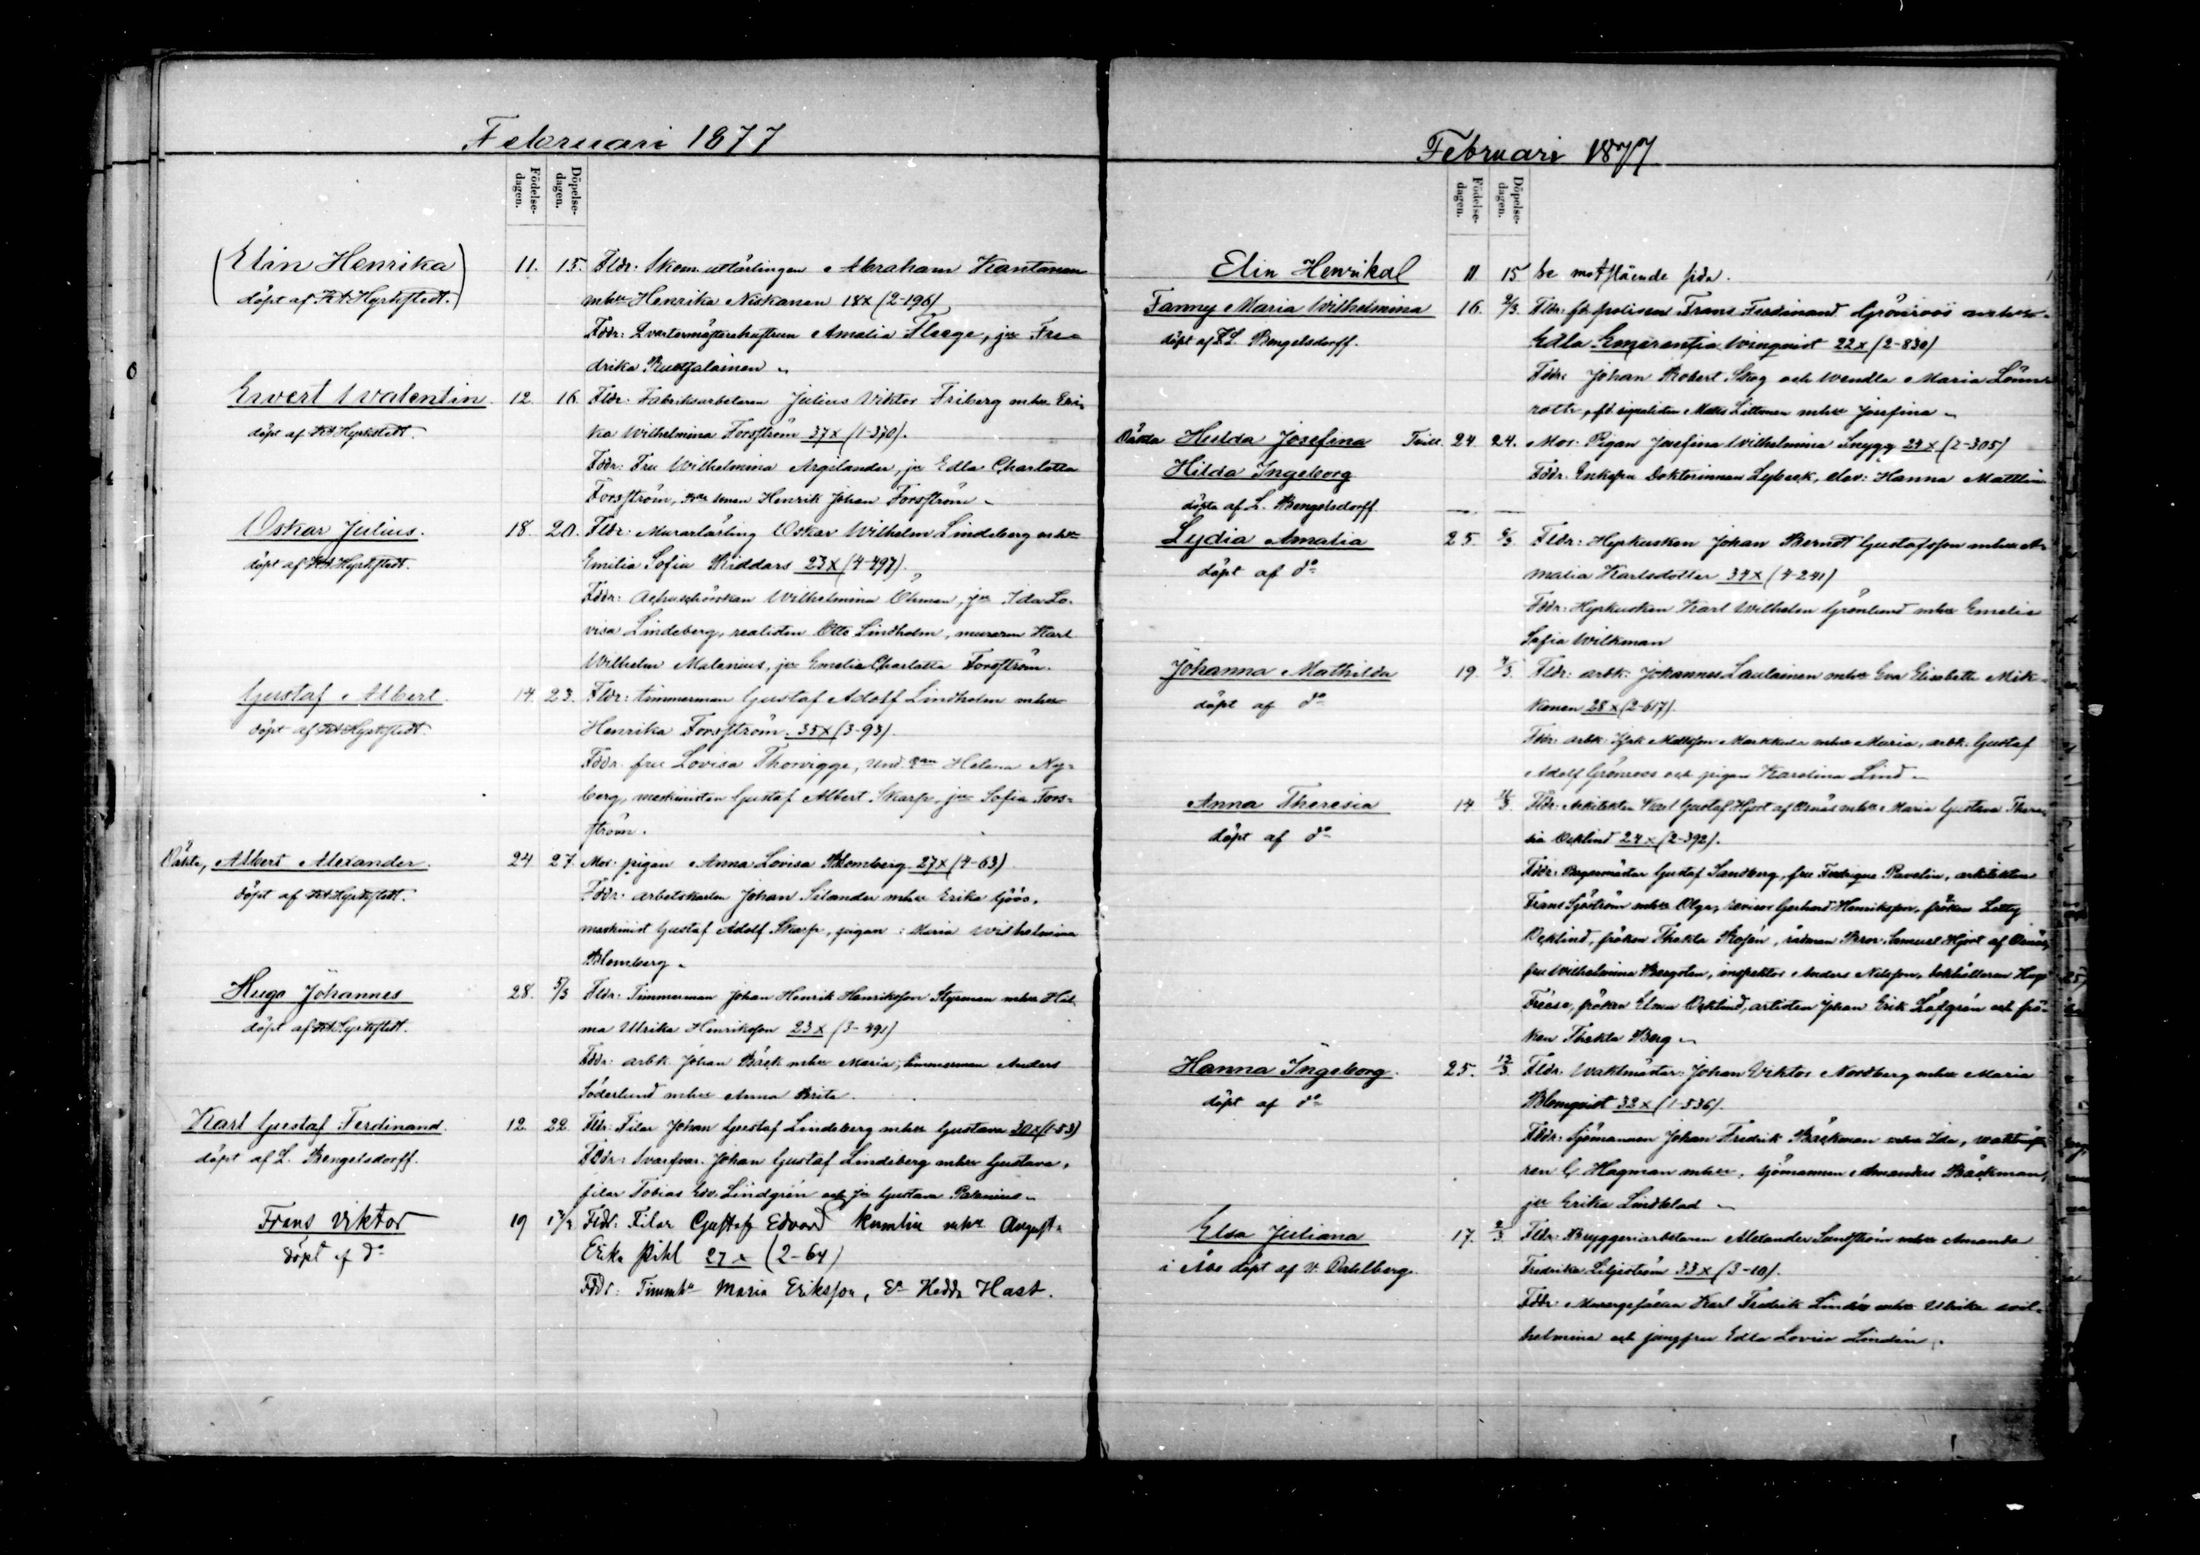 Februari 1877
Födelse-dagen.
Döpelse-dagen.
(Elin Henrika)
döpt af Hyrkstedt.
11. 15. Fldr: Skom. utlärlingen Abraham Kantanen
mhu Henrika Niskanen 18x (2-196)
Fddr: Qvartermästarehustrun Amalia Fleege, jfr Fre-
drika
Evert Valentin
döpt af Hyrkstedt.
12. 16. Fldr: Fabriksarbetaren Julius Viktor Friberg mhu Eri-
ka Wilhelmina Forsström 37x (1-370).
Fddr: Fru Wilhelmina Argelander, jfr Edla Charlotta
Forsström, Henrik Johan Forsström
Oskar Julius.
döpt af Hyrkstedt.
18. 20. Fldr: Murarlärling Oskar Wilhelm Lindeberg mhu
Emilia Sofia Riddars 23x (4-497).
Fddr: Wilhelmina Öhman, jfr Ida Lo-
visa Lindeberg, realisten Otto Lindholm, muraren Karl
Wilhelm Malenius, jfr Emelia Charlotta Forsström.
Gustaf Albert.
döpt af Hyrkstedt.
14. 23. Fldr: timmerman Gustaf Adolf Lindholm mhu
Henrika Forsström 35x (3-93).
Fddr: fru Lovisa Thorvigge, Helena Ny-
berg, maskinisten Gustaf Albert Skarp, jfr Sofia Fors-
ström.
Oäkta, Albert Alexander.
döpt af Hyrkstedt.
24 27. Mor: pigan Anna Lovisa Blomberg 27x (4-63)
Fddr: arbetskarlen Johan Silander mhu Erika
maskinist Gustaf Adolf Skarp, pigan Maria Wilhelmina
Blomberg
Hugo Johannes
döpt af Hyrkstedt.
28. 5/3 Fldr: Timmerman Johan Henrik Henriksson Styrman mhu Hel-
ma Ulrika Henriksson 23x (3-491)
Fddr: arbk. Johan Bäck mhu Maria, timmerman Anders
Söderlund mhu Anna Brita.
Karl Gustaf Ferdinand.
döpt af L. Bengelsdorff.
12. 22. Fldr: Filar Johan Gustaf Lindeberg mhu Gustava 30x (1-53)
Fddr: Svarfvar. Johan Gustaf Lindeberg mhu Gustava,
filar Tobias Edv. Lindgrén och jfr Gustava
Frans Viktor
döpt af do
19 Fldr: Filar Gustaf Edvard Kumlin mhu Augusta
Erika Pihl 27x (2-64)
Fddr: Maria Eriksson, Hedda Hast.
Februari 1877
Födelse-dagen.
Döpelse-dagen.
Elin Henrika
11 15 Se motstående sida.
Fanny Maria Wilhelmina
döpt af L. Bengelsdorff.
16. 2/3. Fldr: polisen Frans Ferdinand Grönroos mhu
Edla Emerentia Winqvist 22x (2-830)
Fddr: Johan Robert Skog och Wendla Maria Lönn-
roth, Littonen mhu Josefina
Oäkta Hulda Josefina Tvill.
Hilda Ingeborg
döpta af L. Bengelsdorff
24. 24. Mor: Pigan Josefina Wilhelmina Snygg 29x (2-305)
Fddr: Enkefru Doktorinnan Lybeck, elev: Hanna
Lydia Amalia
döpt af do
25. Fldr: Hyrkusken Johan Berndt Gustafsson mhu A-
malia Karlsdotter 34x (4-241)
Fddr: Hyrkusken Karl Wilhelm Grönlund mhu Emelie
Sofia Wilkman
Johanna Mathilda
döpt af do
19. Fldr: arbk. Johannes Laulainen mhu Eva Elisabeth Mik-
kanen 28x (2-617).
Fddr: arbk. Mattsson Markkula mhu Maria, arbk. Gustaf
Adolf Grönroos och pigan Karolina Lind
Anna Theresia
döpt af do
14. Fldr: Arkitekten Karl Gustaf Hjort af Ornäs mhu Maria Gustava There-
sia Ocklind 24x (2-392).
Fddr: Bagaremästar Gustaf Sandberg, fru Fredrique Pavelin, arkitekten
Frans Sjöström mhu Olga, revisor Gerhard Henriksson, fröken Lotty
Ocklind, fröken Thekla Rosén, rådman Bror Samuel Hjort af Ornäs,
fru Wilhelmina Bergsten, inspektor Anders Nilsson, bokhållaren Hugo
fröken Elma Ocklind, artisten Johan Erik Löfgrén och frö-
ken Thekla Berg
Hanna Ingeborg.
döpt af do
25. 12/3 Fldr: Waktmästar. Johan Viktor Nordberg mhu Maria
Blomqvist 32x (1-536).
Fddr: Sjömannen Johan Fredrik Bäckman mhu Ida,
G. Hagman mhu, sjömannen Amandus Bäckman,
jfr Erika Lindblad
Elsa Juliana
i Åbo döpt af V. Dahlberg.
17. Fldr: Bryggeriarbetaren Alexander Sandström mhu Amanda
Fredrika Liljeström 33x (3-10).
Fddr: Karl Fredrik Lindén mhu Ulrika Wil-
helmina och jungfru Edla Lovisa Lindén.